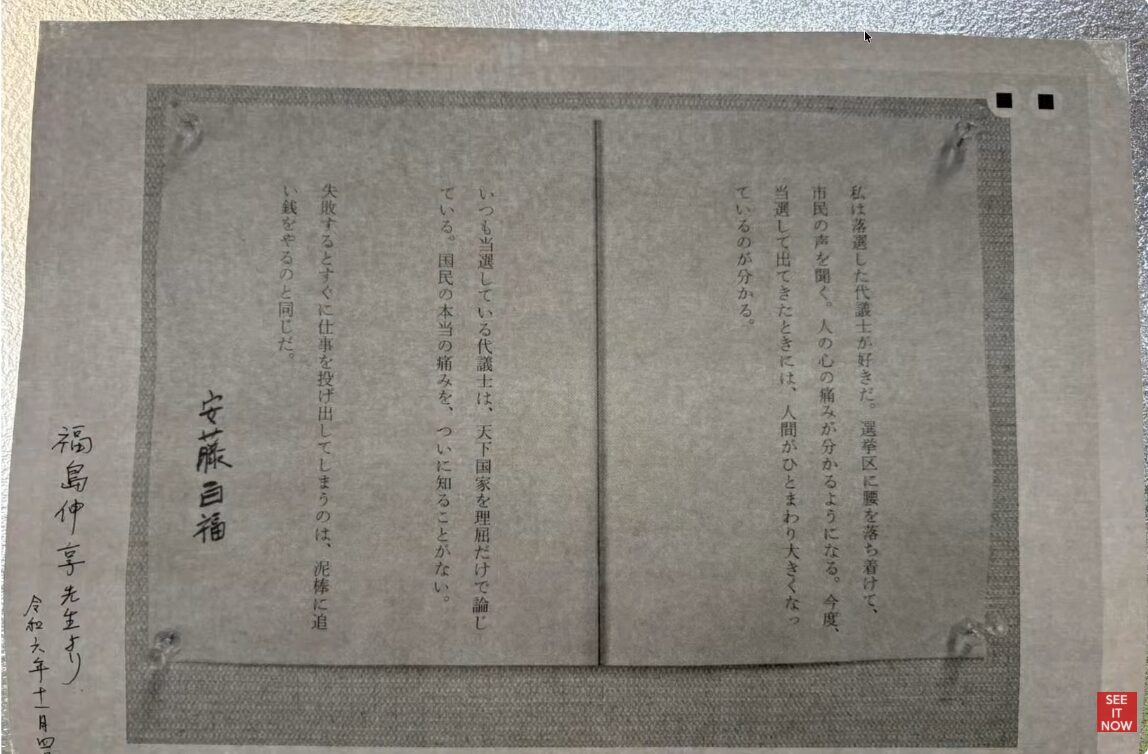 私は落選した代議士が好きだ。選挙区に腰を落ち着けて、
市民の声を聞く。人の心の痛みが分かるようになる。今度、
当選して出てきたときには、人間がひとまわり大きくなっ
ているのが分かる。
いつも当選している代議士は、天下国家を理屈だけで論じ
ている。国民の本当の痛みを、ついに知ることがない。
失敗するとすぐに仕事を投げ出してしまうのは、泥棒に追
い銭をやるのと同じだ。
安藤百福
福島伸享先生より
令和六年十一月四日
SEE
IT
NOW